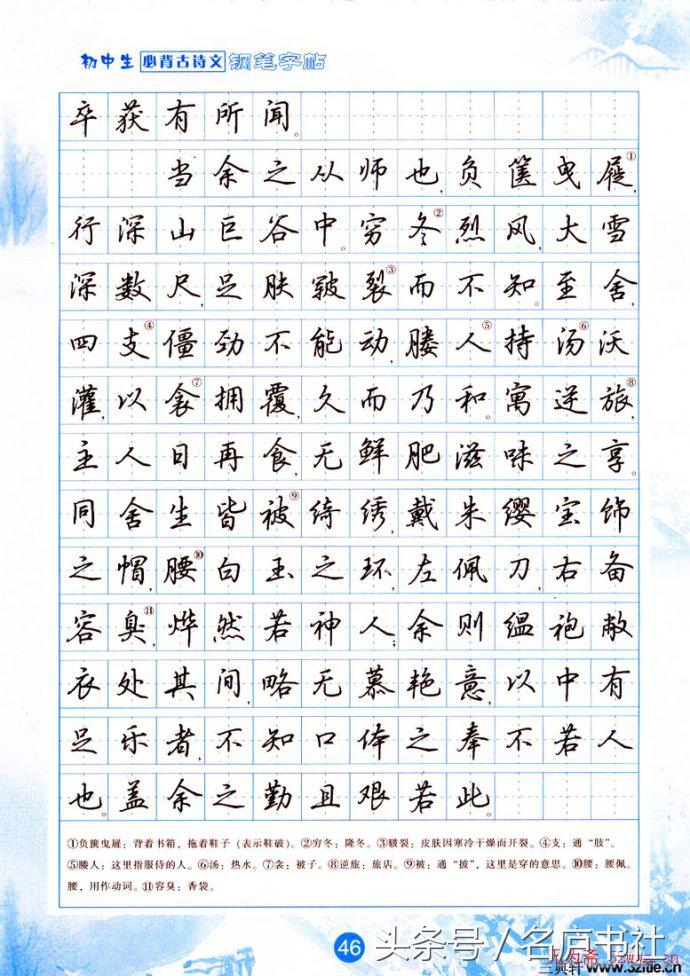 初中生 必背古诗文 钢笔字帖
卒获有所闻。
当余之从师也，负箧曳屣①
行深山巨谷中。穷冬②烈风，大雪
深数尺，足肤皲裂③而不知。至舍，
四支④僵劲不能动，媵人⑤持汤⑥沃
灌，以衾⑦拥覆，久而乃和。寓逆旅⑧，
主人日再食，无鲜肥滋味之享。
同舍生皆被⑨绮绣，戴朱缨宝饰
之帽，腰⑩白玉之环，左佩刀，右备
容臭⑪，烨然若神人；余则缊袍敝
衣处其间，略无慕艳意，以中有
足乐者，不知口体之奉不若人
也。盖余之勤且艰若此。
①负箧曳屣：背着书箱，拖着鞋子（表示鞋破）。②穷冬：隆冬。③皲裂：皮肤因寒冷干燥而开裂。④支：通“肢”。
⑤媵人：这里指服侍的人。⑥汤：热水。⑦衾：被子。⑧逆旅：旅店。⑨被：通“披”，这里是穿的意思。⑩腰：腰佩。
腰，用作动词。⑪容臭：香袋。
46
头条号／名庐书社